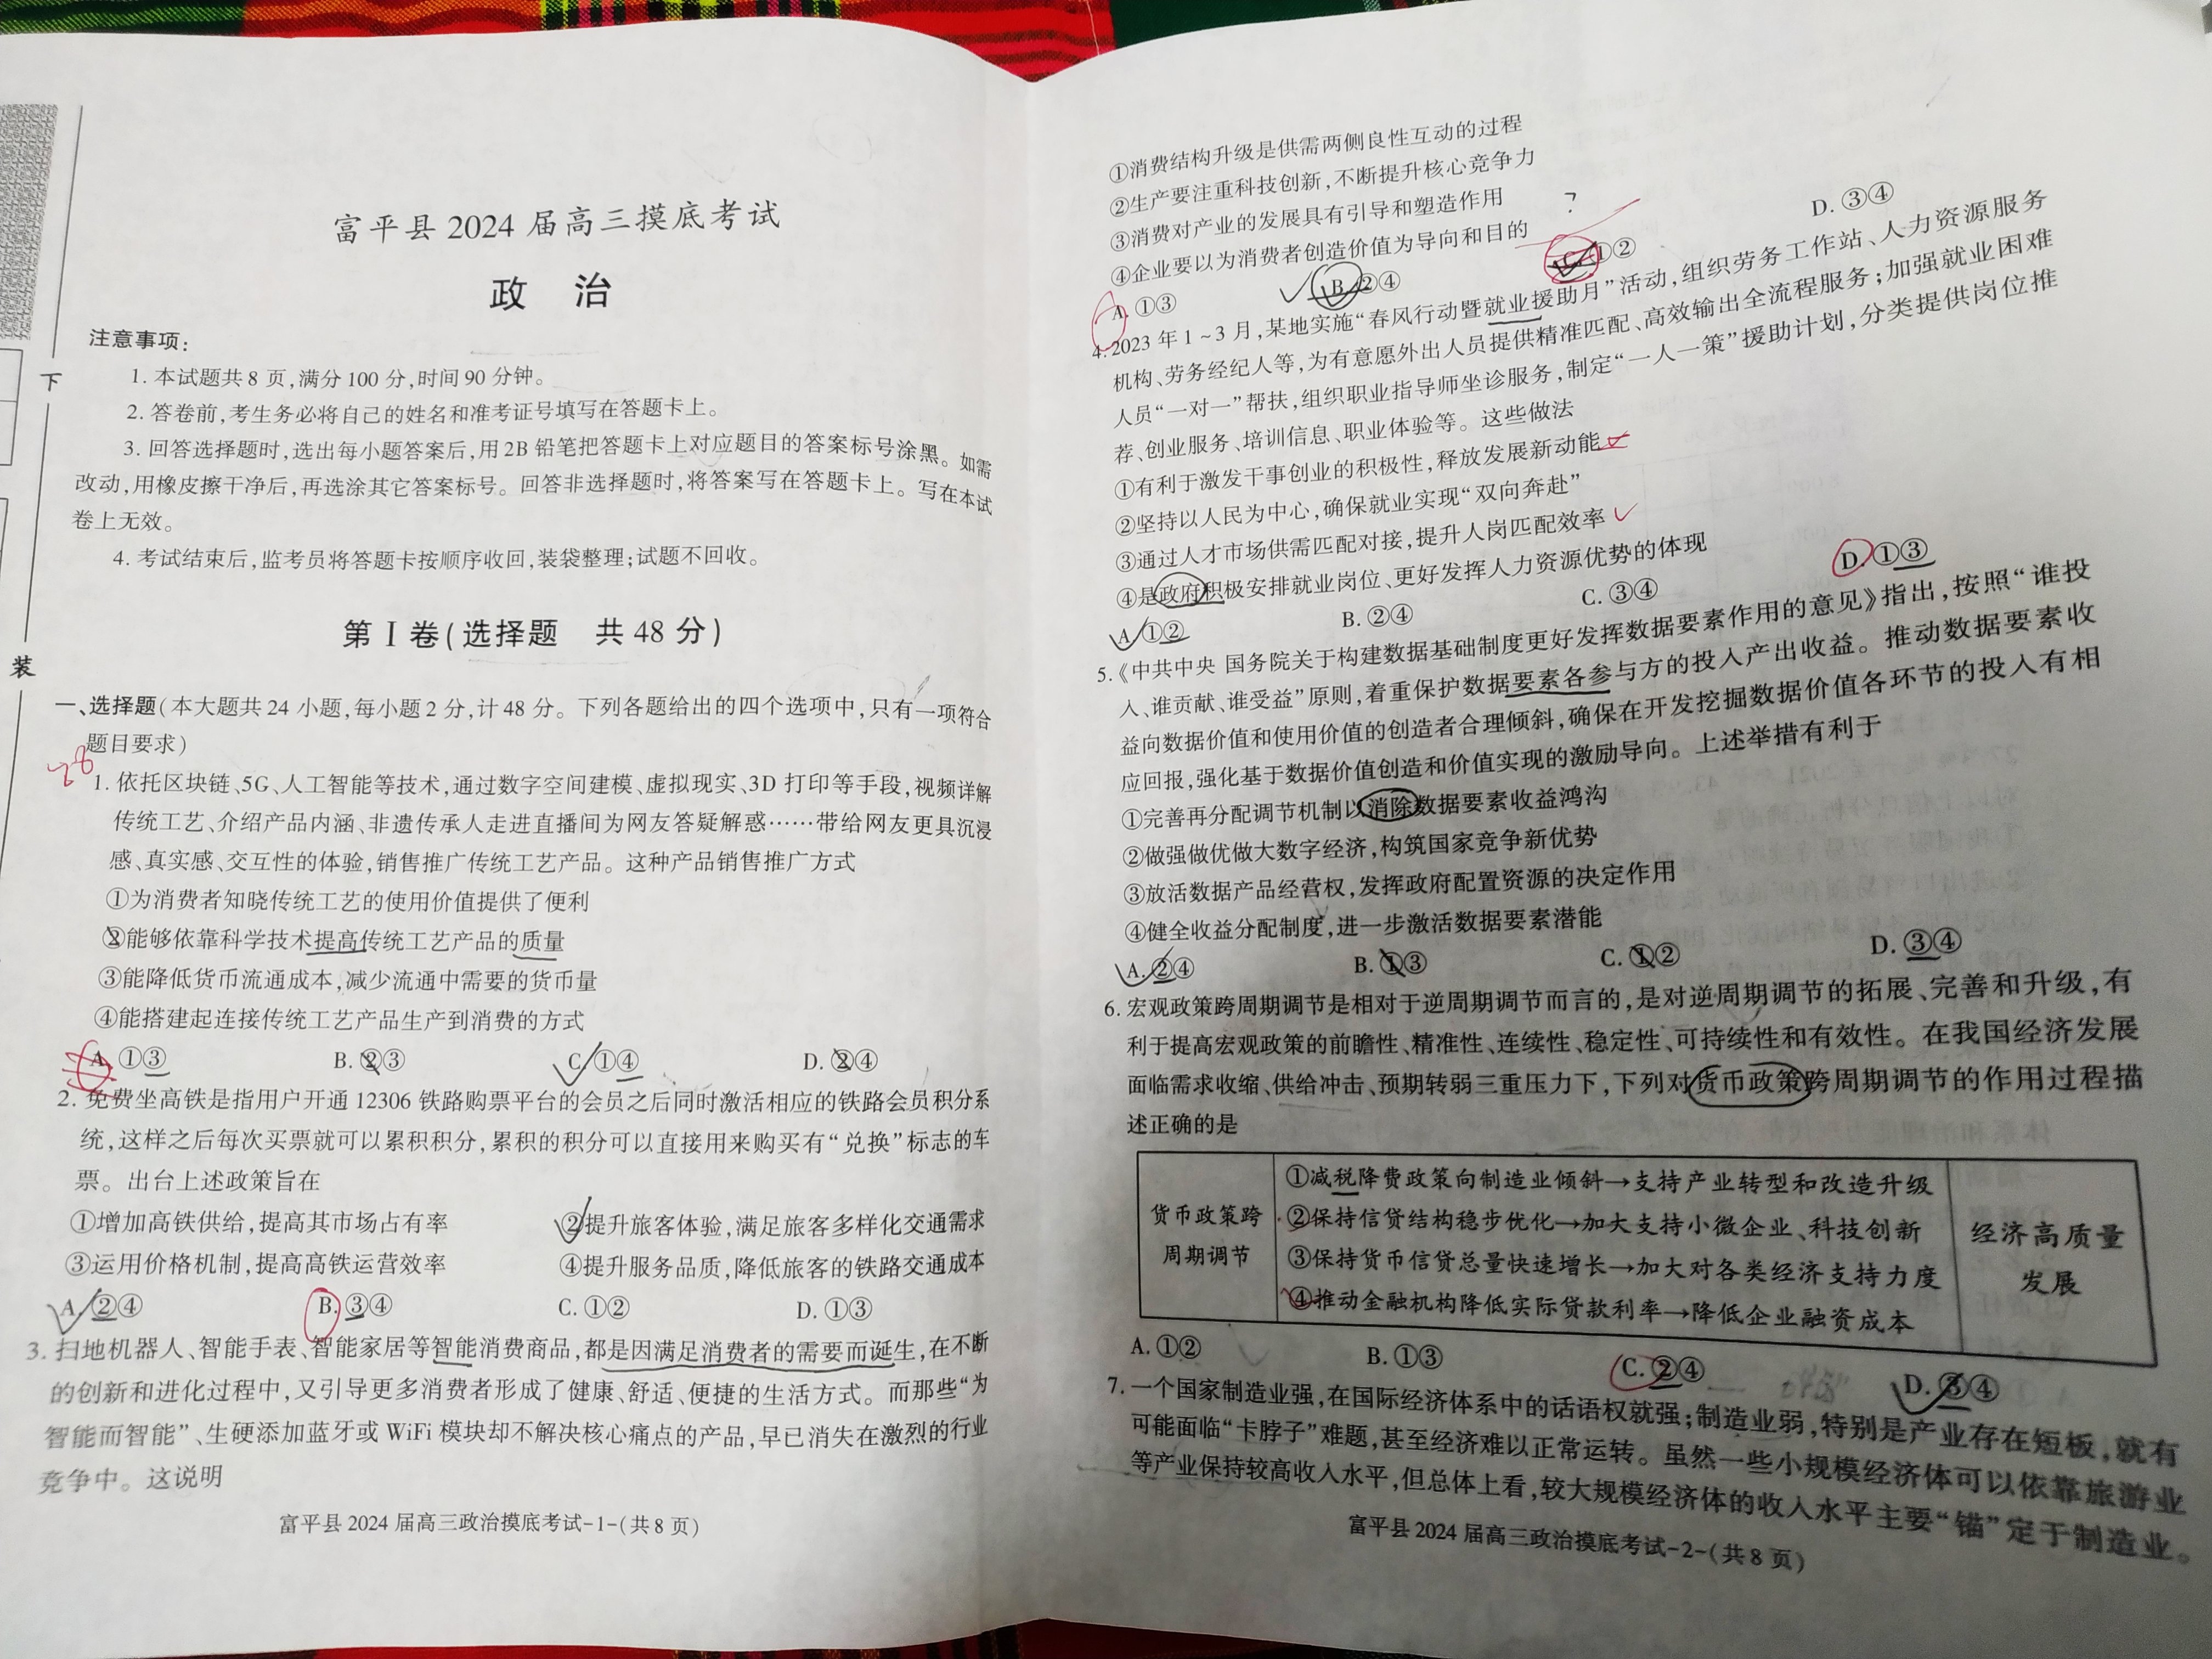 下
装
富平县 2024 届高三摸底考试
政 治
注意事项:
1. 本试题共 8 页,满分 100 分,时间 90 分钟。
2. 答卷前,考生务必将自己的姓名和准考证号填写在答题卡上。
3. 回答选择题时,选出每小题答案后,用 2B 铅笔把答题卡上对应题目的答案标号涂黑。如需
改动,用橡皮擦干净后,再选涂其它答案标号。回答非选择题时,将答案写在答题卡上。写在本试
卷上无效。
4. 考试结束后,监考员将答题卡按顺序收回,装袋整理;试题不回收。
第 I 卷(选择题 共 48 分)
一、选择题(本大题共 24 小题,每小题 2 分,计 48 分。下列各题给出的四个选项中,只有一项符合
题目要求)
28
1. 依托区块链、5G、人工智能等技术,通过数字空间建模、虚拟现实、3D 打印等手段,视频详解
传统工艺、介绍产品内涵、非遗传承人走进直播间为网友答疑解惑……带给网友更具沉浸
感、真实感、交互性的体验,销售推广传统工艺产品。这种产品销售推广方式
①为消费者知晓传统工艺的使用价值提供了便利
②能够依靠科学技术提高传统工艺产品的质量
③能降低货币流通成本,减少流通中需要的货币量
④能搭建起连接传统工艺产品生产到消费的方式
A. ①③ B. ②③ C. ①④ D. ②④
2. 免费坐高铁是指用户开通 12306 铁路购票平台的会员之后同时激活相应的铁路会员积分系
统,这样之后每次买票就可以累积积分,累积的积分可以直接用来购买有“兑换”标志的车
票。出台上述政策旨在
①增加高铁供给,提高其市场占有率 ②提升旅客体验,满足旅客多样化交通需求
③运用价格机制,提高高铁运营效率 ④提升服务品质,降低旅客的铁路交通成本
A. ②④ B. ③④ C. ①② D. ①③
3. 扫地机器人、智能手表、智能家居等智能消费商品,都是因满足消费者的需要而诞生,在不断
的创新和进化过程中,又引导更多消费者形成了健康、舒适、便捷的生活方式。而那些“为
智能而智能”、生硬添加蓝牙或 WiFi 模块却不解决核心痛点的产品,早已消失在激烈的行业
竞争中。这说明
富平县 2024 届高三政治摸底考试-1-(共 8 页)
①消费结构升级是供需两侧良性互动的过程
②生产要注重科技创新,不断提升核心竞争力
③消费对产业的发展具有引导和塑造作用
?
④企业要以为消费者创造价值为导向和目的
A. ①③ B. ②④ C. ①② D. ③④
4. 2023 年 1~3 月,某地实施“春风行动暨就业援助月”活动,组织劳务工作站、人力资源服务
机构、劳务经纪人等,为有意愿外出人员提供精准匹配、高效输出全流程服务;加强就业困难
人员“一对一”帮扶,组织职业指导师坐诊服务,制定“一人一策”援助计划,分类提供岗位推
荐、创业服务、培训信息、职业体验等。这些做法
①有利于激发干事创业的积极性,释放发展新动能
②坚持以人民为中心,确保就业实现“双向奔赴”
③通过人才市场供需匹配对接,提升人岗匹配效率
④是政府积极安排就业岗位、更好发挥人力资源优势的体现
A. ①② B. ②④ C. ③④ D. ①③
5.《中共中央 国务院关于构建数据基础制度更好发挥数据要素作用的意见》指出,按照“谁投
入、谁贡献、谁受益”原则,着重保护数据要素各参与方的投入产出收益。推动数据要素收
益向数据价值和使用价值的创造者合理倾斜,确保在开发挖掘数据价值各环节的投入有相
应回报,强化基于数据价值创造和价值实现的激励导向。上述举措有利于
①完善再分配调节机制以消除数据要素收益鸿沟
②做强做优做大数字经济,构筑国家竞争新优势
③放活数据产品经营权,发挥政府配置资源的决定作用
④健全收益分配制度,进一步激活数据要素潜能
A. ②④ B. ①③ C. ①② D. ③④
6. 宏观政策跨周期调节是相对于逆周期调节而言的,是对逆周期调节的拓展、完善和升级,有
利于提高宏观政策的前瞻性、精准性、连续性、稳定性、可持续性和有效性。在我国经济发展
面临需求收缩、供给冲击、预期转弱三重压力下,下列对货币政策跨周期调节的作用过程描
述正确的是
货币政策跨
周期调节
①减税降费政策向制造业倾斜→支持产业转型和改造升级
②保持信贷结构稳步优化→加大支持小微企业、科技创新
③保持货币信贷总量快速增长→加大对各类经济支持力度
④推动金融机构降低实际贷款利率→降低企业融资成本
经济高质量
发展
A. ①② B. ①③ C. ②④ D. ③④
7. 一个国家制造业强,在国际经济体系中的话语权就强;制造业弱,特别是产业存在短板,就有
可能面临“卡脖子”难题,甚至经济难以正常运转。虽然一些小规模经济体可以依靠旅游业
等产业保持较高收入水平,但总体上看,较大规模经济体的收入水平主要“锚”定于制造业。
富平县 2024 届高三政治摸底考试-2-(共 8 页)